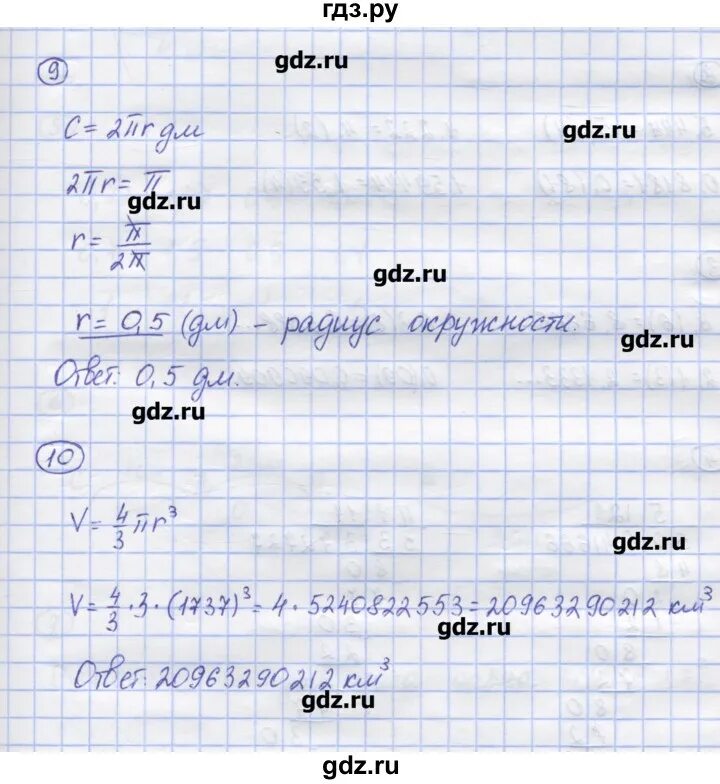 гдз.ру
gdz.ru
9
C = 2πr дм
gdz.ru
2πr = π
gdz.ru
r = π/2π
gdz.ru
r = 0,5 (дм) - радиус окружности.
gdz.ru
Ответ: 0,5 дм.
gdz.ru
10
V = 4/3 πr³
gdz.ru
V = 4/3 · 3 · (1737)³ = 4 · 5240822553 = 20963290212 км³
gdz.ru
Ответ: 20963290212 км³
gdz.ru
gdz.ru